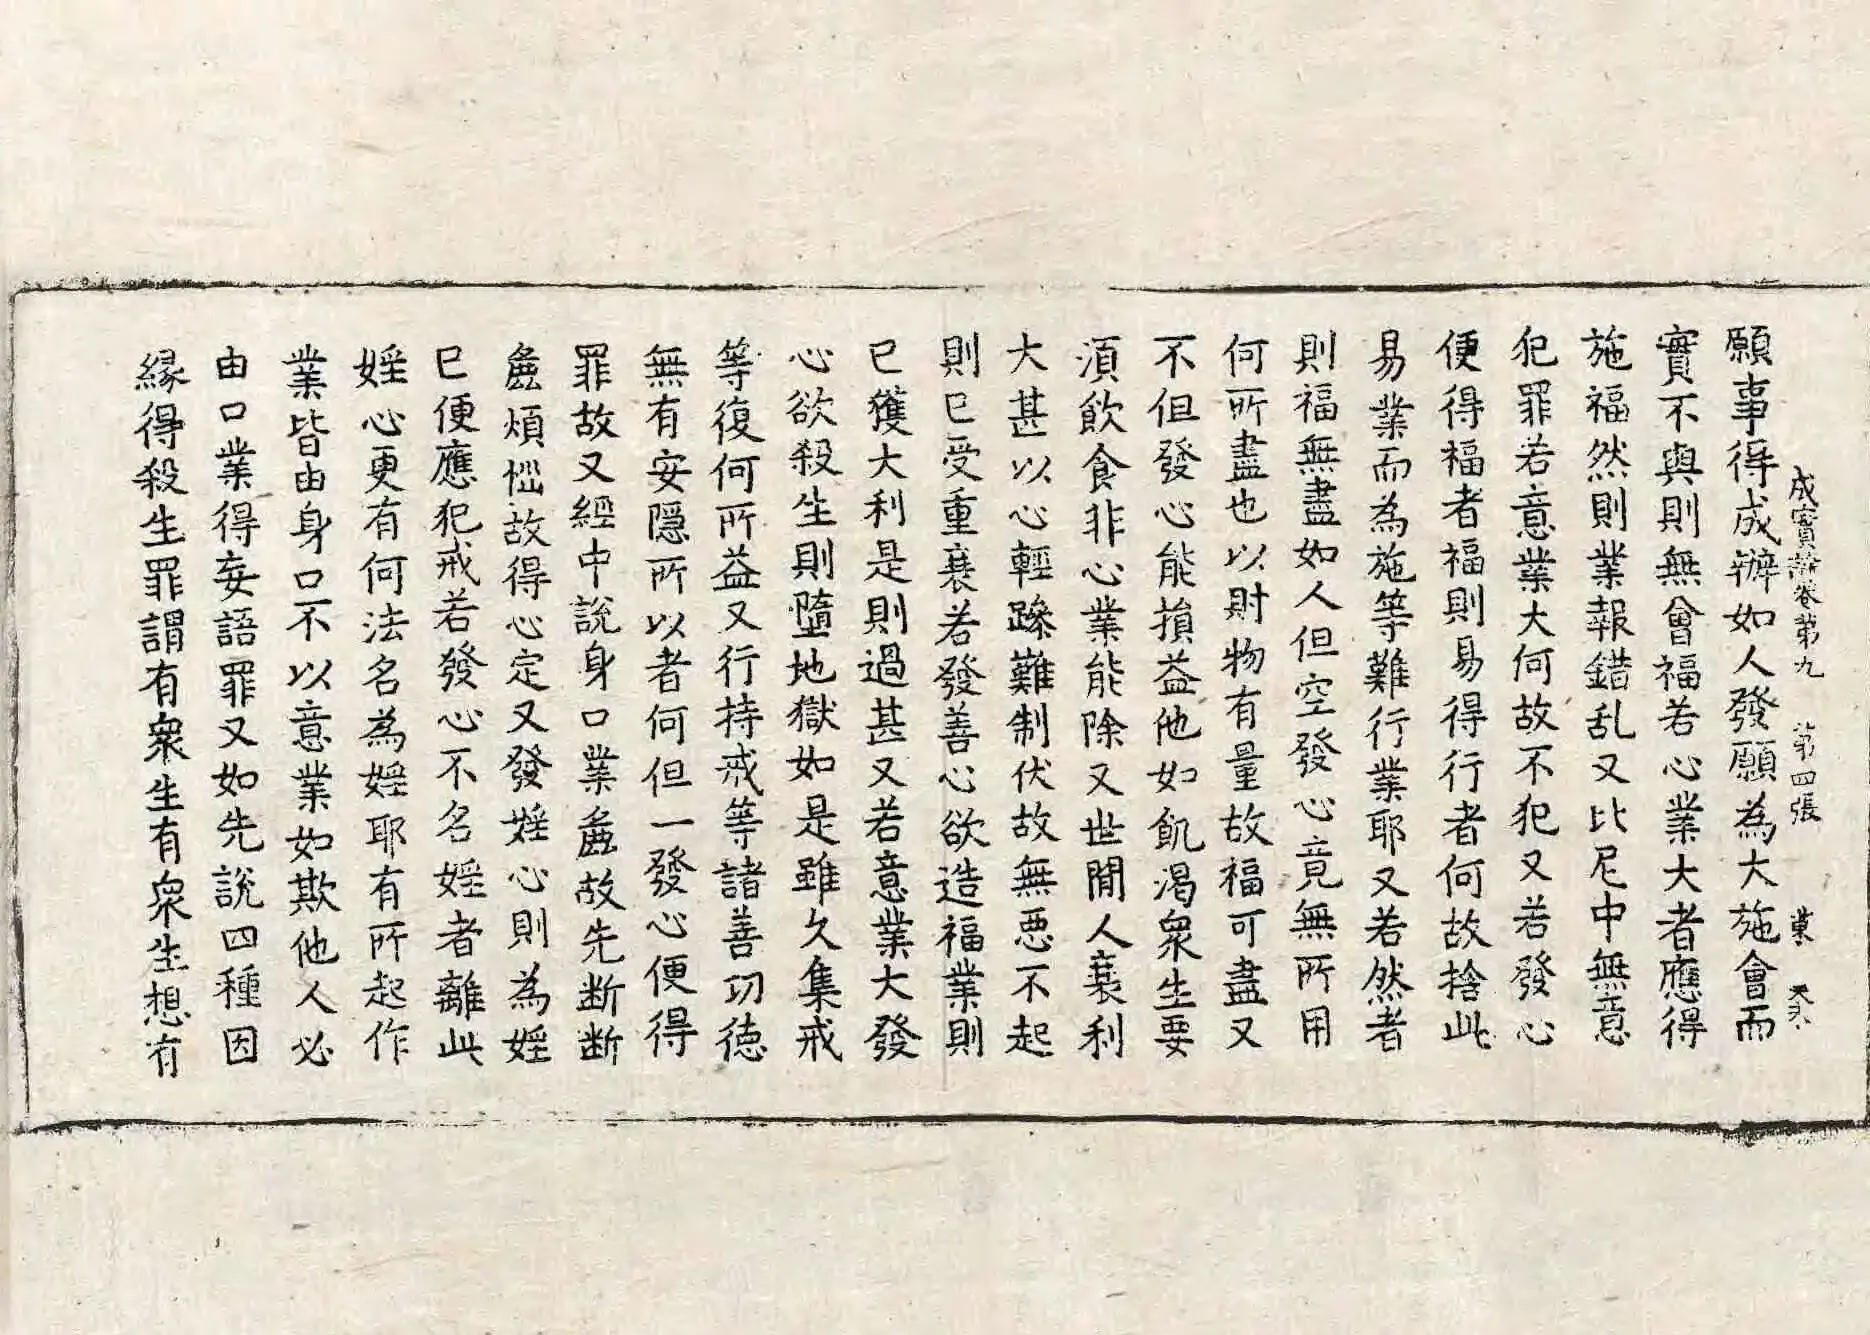 成實論卷第九 第四張
願事得成辦如人發願為大施會而
實不與則無會福若心業大者應得
施福然則業報錯乱又比尼中無意
犯罪若意業大何故不犯又若發心
便得福者福則易得行者何故捨此
易業而為施等難行業耶又若然者
則福無盡如人但空發心竟無所用
何所盡也以財物有量故福可盡又
不但發心能損益他如飢渴眾生要
湏飲食非心業能除又世閒人衰利
大甚以心輕躁難制伏故無惡不起
則已受重衰若發善心欲造福業則
已獲大利是則過甚又若意業大發
心欲殺生則墮地獄如是雖久集戒
等復何所益又行持戒等諸善功德
無有安隱所以者何但一發心便得
罪故又經中說身口業麁故先断断
麁煩惱故得心定又發婬心則為婬
已便應犯戒若發心不名婬者離此
婬心更有何法名為婬耶有所起作
業皆由身口不以意業如欺他人必
由口業得妄語罪又如先說四種因
緣得殺生罪謂有衆生有衆生想有